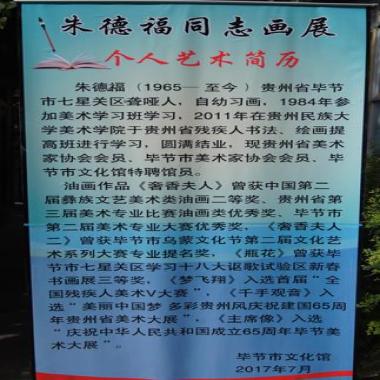 朱德福同志画展
个人艺术简历
朱德福（1965—至今）贵州省毕节
市七星关区聋哑人，自幼习画，1984年参
加美术学习班学习，2011年在贵州民族大
学美术学院于贵州省残疾人书法、绘画提
高班进行学习，圆满结业，现贵州省美术
家协会会员、毕节市美术家协会会员、毕
节市文化馆特聘馆员。
油画作品《奢香夫人》曾获中国第二
届彝族文艺美术类油画二等奖、贵州省第
三届美术专业比赛油画类优秀奖、毕节市
第二届美术专业大赛优秀奖，《奢香夫人
二》曾获毕节市乌蒙文化节第二届文化艺
术系列大赛专业提名奖，《瓶花》曾获毕
节市七星关区学习十八大讴歌试验区新春
书画展三等奖，《梦飞翔》入选首届“全
国残疾人美术V大赛”，《千手观音》入
选“美丽中国梦 多彩贵州风庆祝建国65周
年贵州省美术大展”，《主席像》入选
“庆祝中华人民共和国成立65周年毕节美
术大展”。
毕节市文化馆
2017年7月